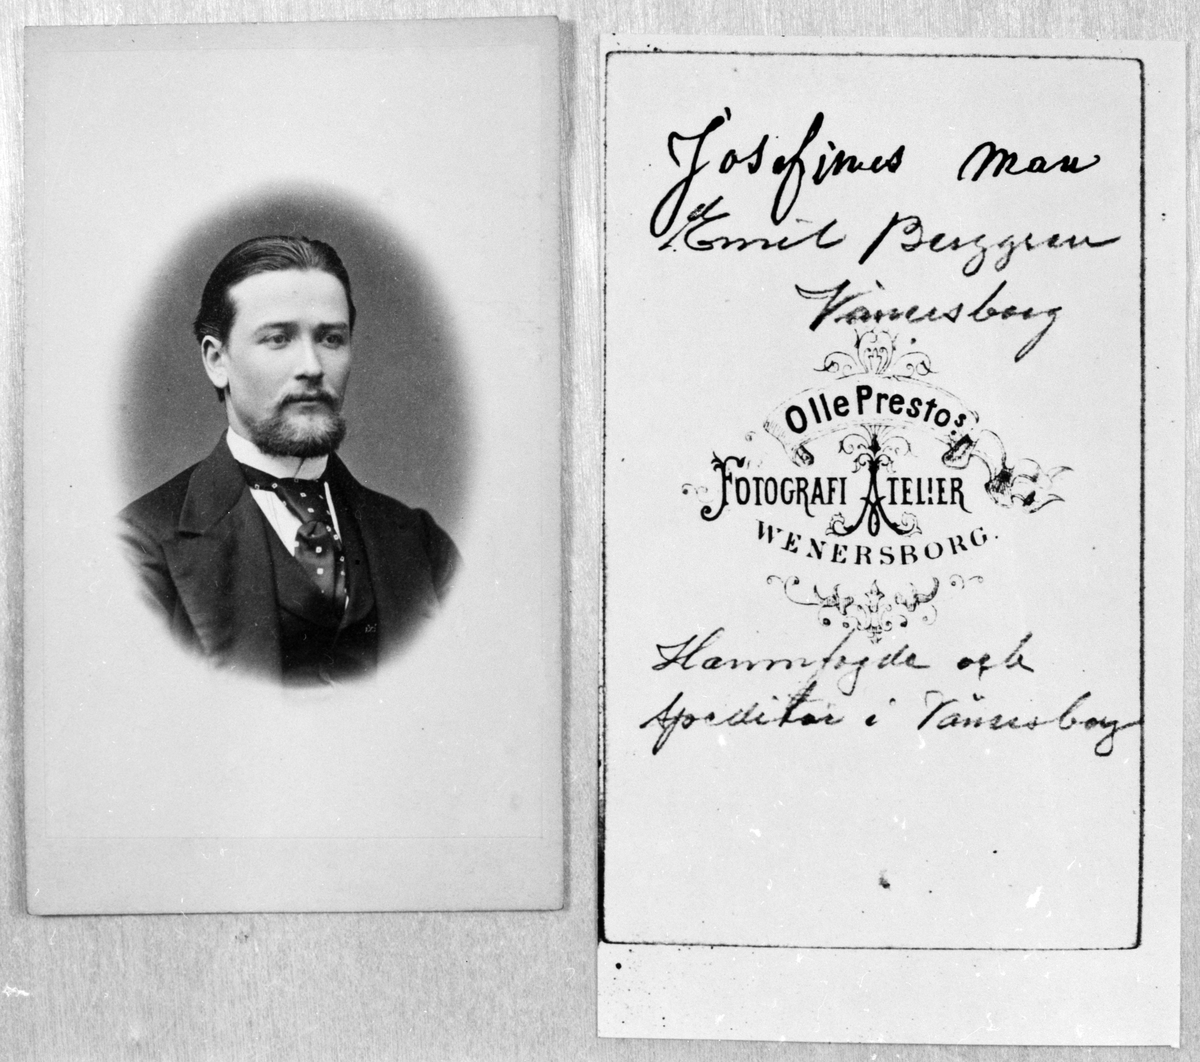 Josefines man
Emil Berggren
Vänersborg
Olle Prestos.
FOTOGRAFI ATELIER
WENERSBORG.
Hamnfogde och
speditör i Vänersborg